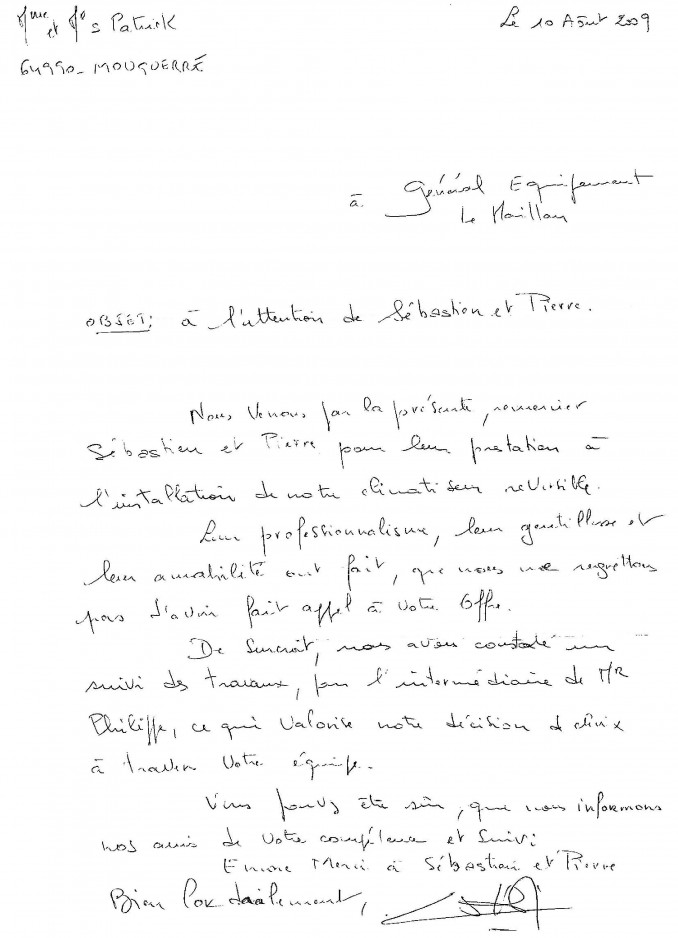 Mme et Mr S Patrick
Le 10 Août 2009
64990 - MOUGUERRE
à Général Equipement
Le Haillan
OBJET: à l'attention de Sébastien et Pierre.
Nous Venons par la présente, remercier
Sébastien et Pierre pour leur prestation à
l'installation de notre climatiseur reversible.
Leur professionnalisme, leur gentillesse et
leur amabilité ont fait, que nous ne regrettons
pas d'avoir fait appel à votre Offre.
De Surcroit, nous avons constaté un
suivi des travaux, par l'intermédiaire de MR
Philippe, ce qui Valorise notre décision de choix
à travers Votre équipe.
Vous pouvez être sûr, que nous informons
nos amis de votre compétence et suivi.
Encore Merci à Sébastien et Pierre
Bien Cordialement,